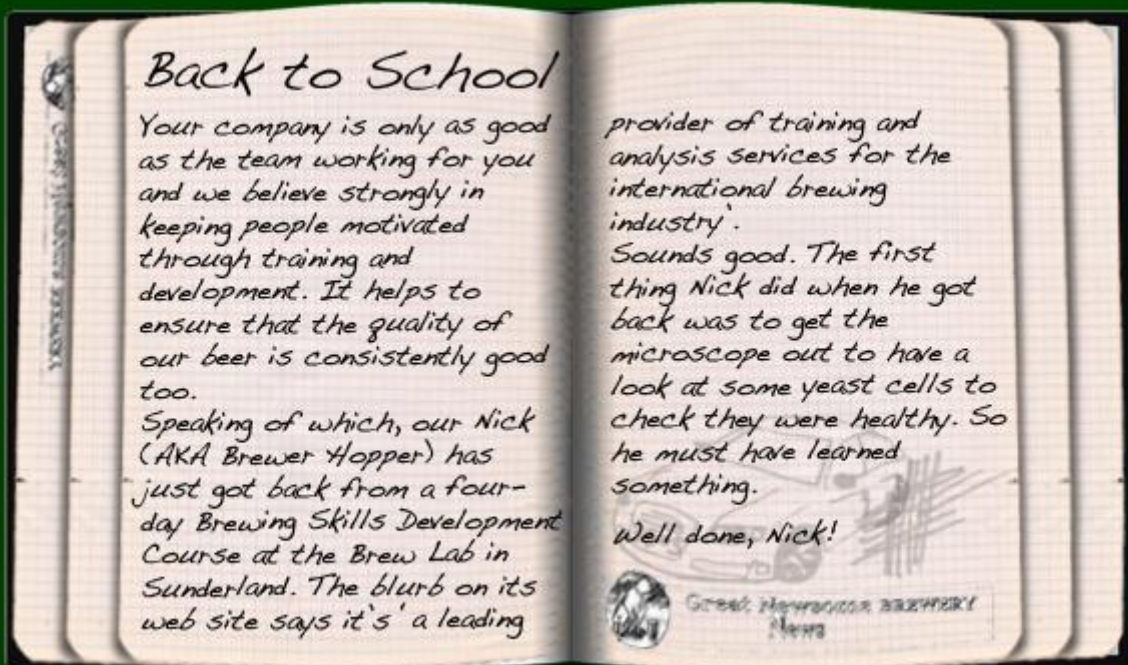 Back to School
Your company is only as good
as the team working for you
and we believe strongly in
keeping people motivated
through training and
development. It helps to
ensure that the quality of
our beer is consistently good
too.
Speaking of which, our Nick
(AKA Brewer Hopper) has
just got back from a four-
day Brewing Skills Development
Course at the Brew Lab in
Sunderland. The blurb on its
web site says it`s ‘a leading
provider of training and
analysis services for the
international brewing
industry`.
Sounds good. The first
thing Nick did when he got
back was to get the
microscope out to have a
look at some yeast cells to
check they were healthy. So
he must have learned
something.
Well done, Nick!
Great Newsome BREWERY
News